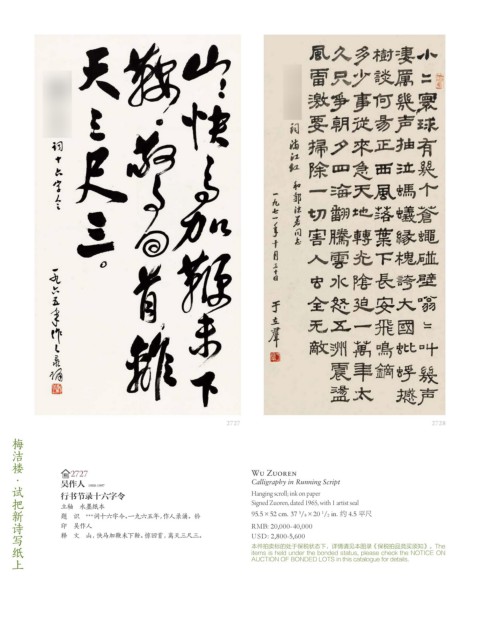 山〻快马加鞭未下
鞍。惊回首。離
天三尺三。
词十六字令
一九六五年作人录诵
小〻寰球有幾个蒼蠅碰壁嗡〻叫幾声
凄厲幾声抽泣螞蟻緣槐誇大國蚍蜉撼
樹談何易正西風落葉下長安飛鳴鏑
多少事從來急天地轉光陰迫一萬年太
久只爭朝夕四海翻騰雲水怒五洲震盪
風雷激要掃除一切害人虫全无敵
詞 滿江紅 和郭沫若同志
一九七一年十月二十日
于立群
2727
2728
梅洁楼·试把新诗写纸上
2727
吴作人 1908-1997
行书节录十六字令
立轴 水墨纸本
题 识 ***词十六字令,一九六五年,作人录诵。钤
印 吴作人
释 文 山,快马加鞭未下鞍,惊回首,离天三尺三。
WU ZUOREN
Calligraphy in Running Script
Hanging scroll; ink on paper
Signed Zuoren, dated 1965, with 1 artist seal
95.5 × 52 cm. 37 5/8 × 20 1/2 in. 约 4.5 平尺
RMB: 20,000-40,000
USD: 2,800-5,600
本件拍卖标的处于保税状态下,详情请见本图录《保税拍品竞买须知》。The
items is held under the bonded status, please check the NOTICE ON
AUCTION OF BONDED LOTS in this catalogue for details.